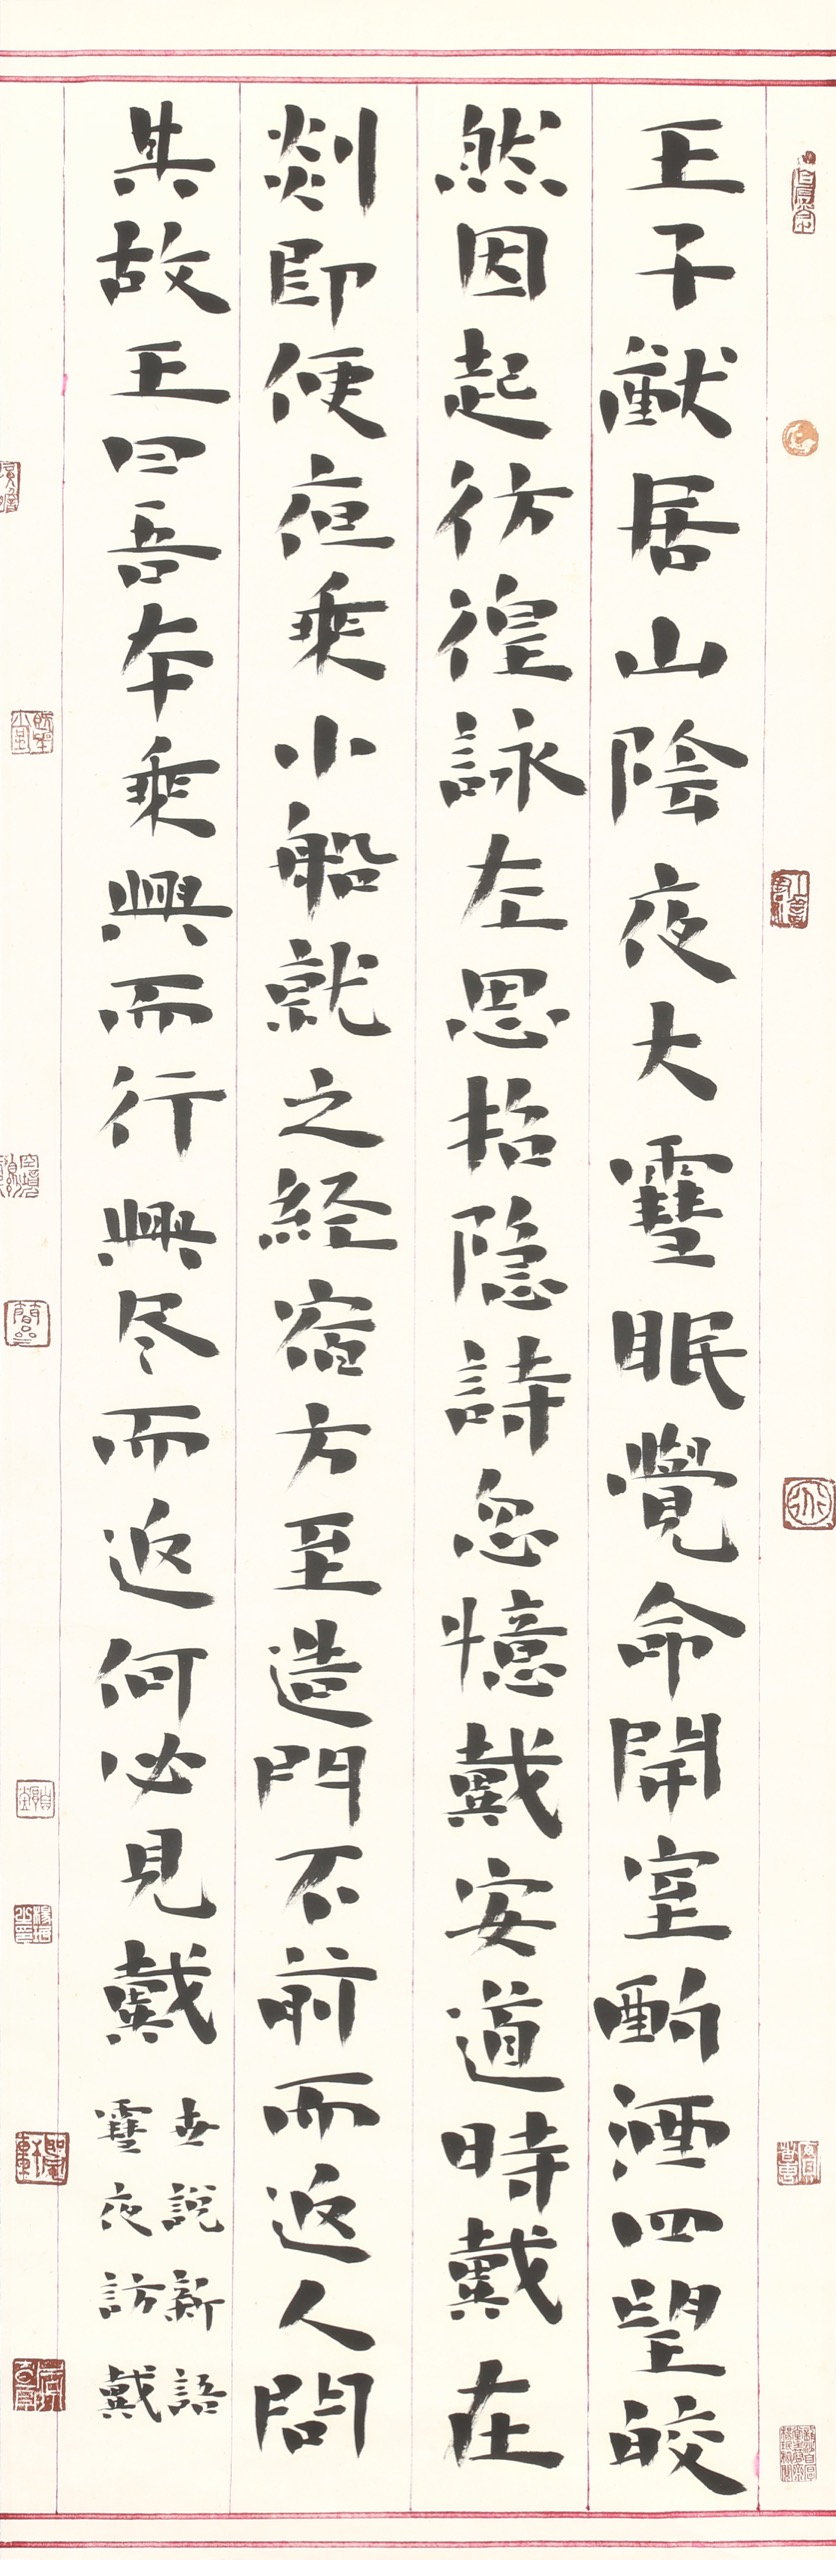 王子猷居山陰夜大雪眠覺命開室酌酒四望皎
然因起彷徨詠左思招隐詩忽憶戴安道時戴在
剡即便夜乘小船就之經宿方至造門不前而返人問
其故王曰吾本乘興而行興尽而返何必見戴
世說新語
雪夜訪戴